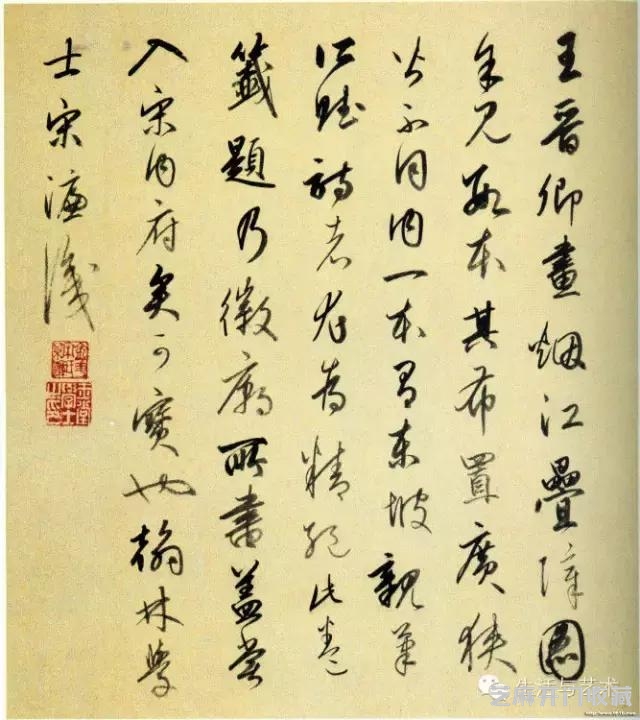 王晉卿畫烟江疊嶂圖
余見數本其布置廣狹
皆不同內一本有東坡親筆
江賦詩者尤為精絕此卷
籤題乃徽廟所書蓋嘗
入宋內府矣可寶也翰林學
士宋濂識
生活与艺术